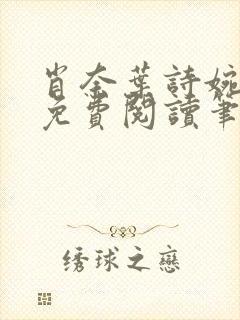 肖奈葉詩婉
免費閱讀筆
绣球之戀